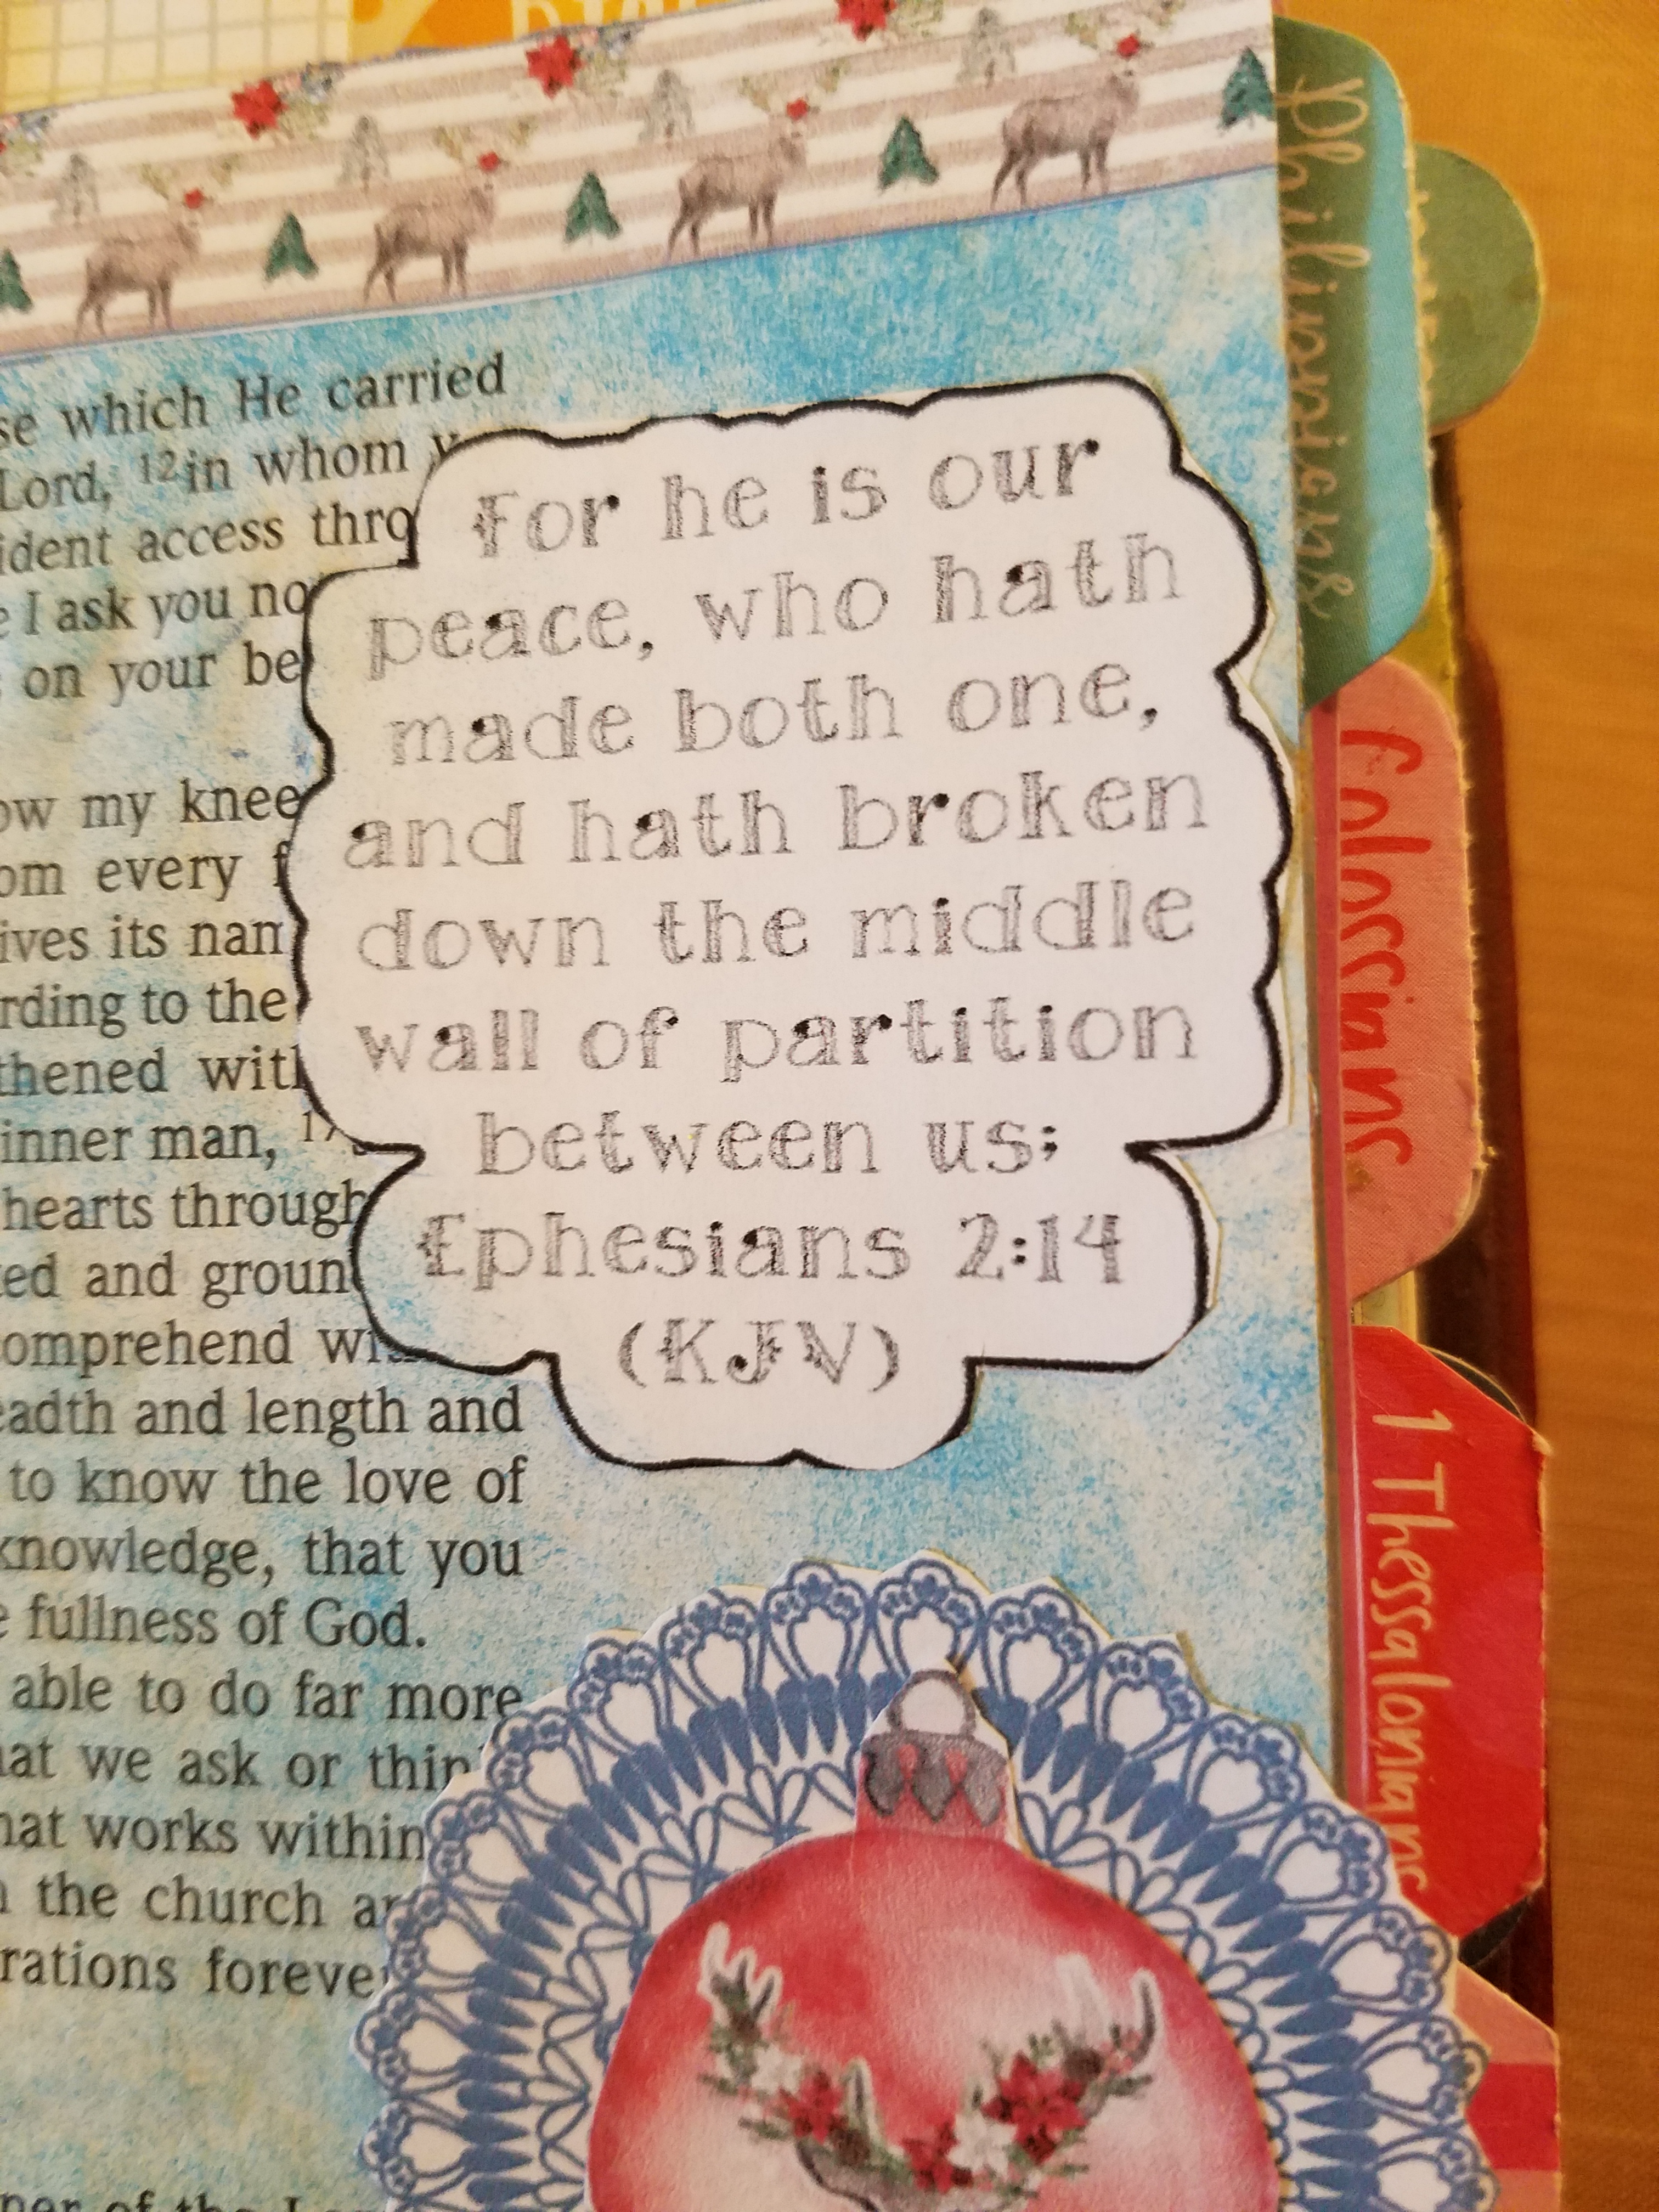 which He carried
Lord, 12in whom
access
I ask you
on your
my knee
every
its
to the
with
inner man, 17
hearts through
and
comprehend
and length and
to know the love of
knowledge, that you
fullness of God.
able to do far more
we ask or
works within
the church
of the
For he is our
peace, who hath
made both one,
and hath broken
down the middle
wall of partition
between us;
Ephesians 2:14
(KJV)
Philippians
Colossians
1 Thessalonians